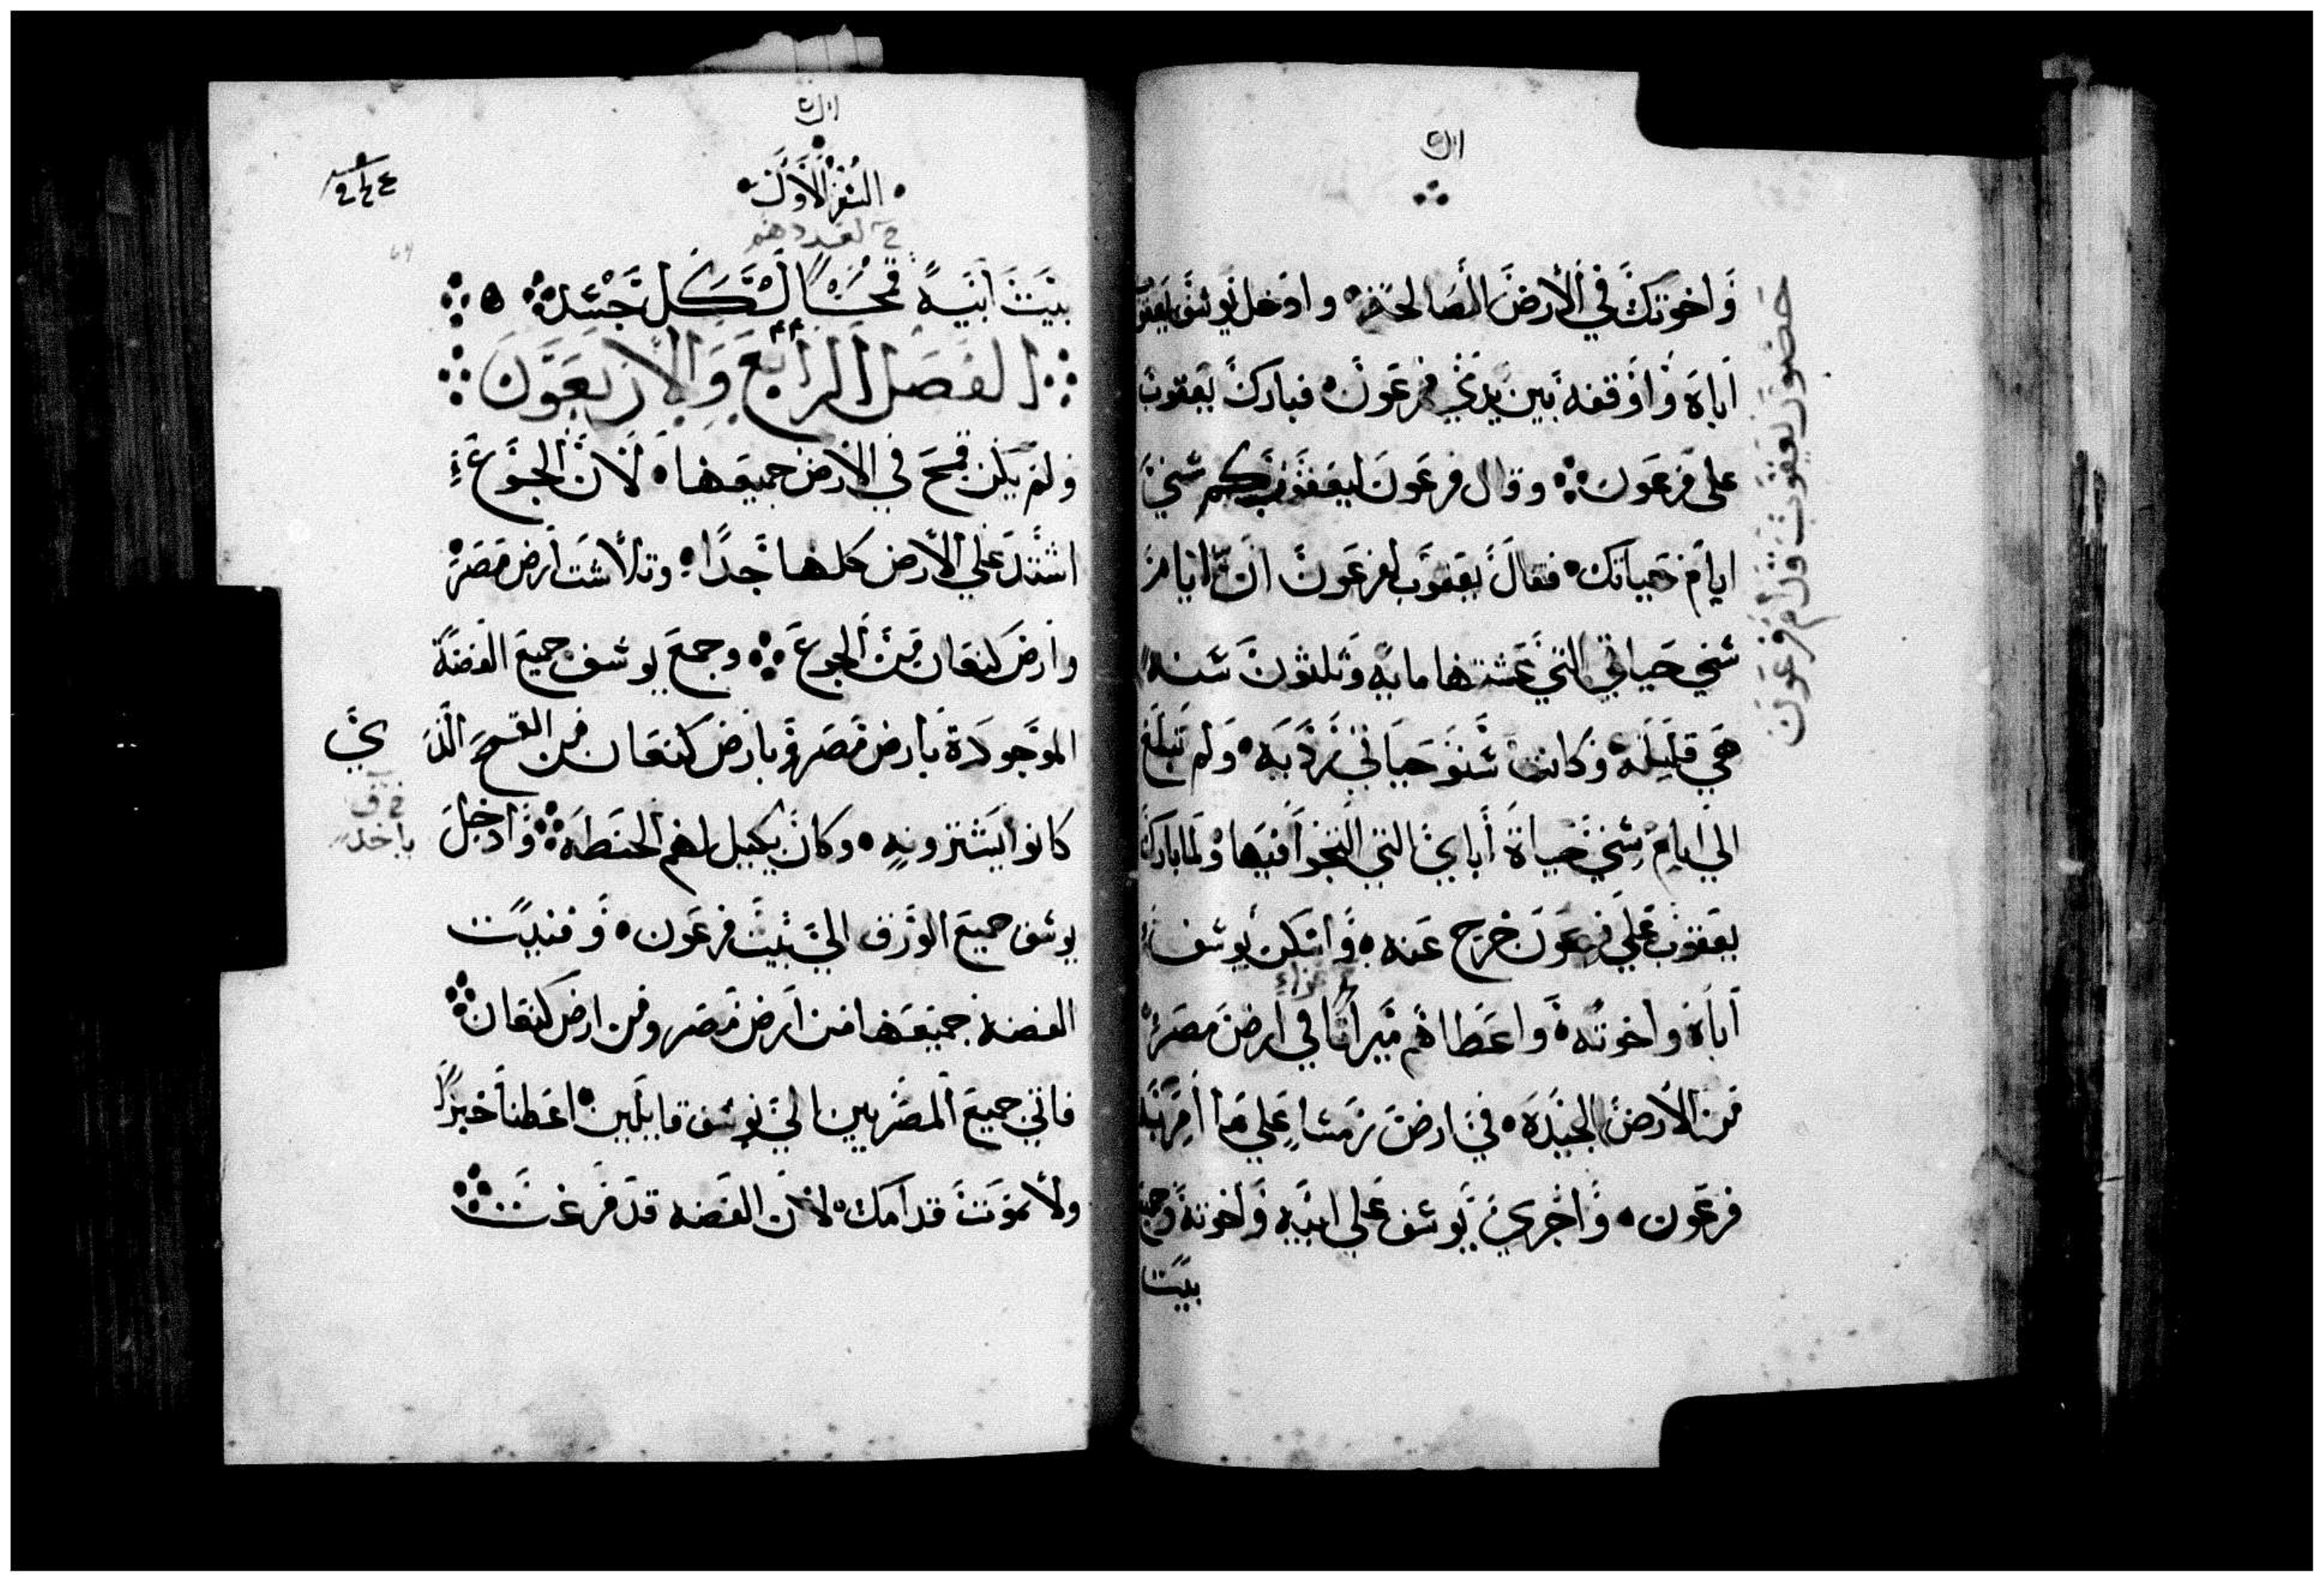 واخوتك في الأرض الصالحه وادخل يوسف يعقوب
اباه واوقفه بين يدي فرعون فبارك يعقوب
على فرعون وقال فرعون ليعقوب كم سني
ايام حياتك فقال يعقوب لفرعون ان ايام
سني حياتي التي عشتها مايه وثلثون سنه
هي قليله وكانت سنو حياتي رديه ولم تبلغ
الي ايام سني حياة أباي التي انتجوا فيها ولما بارك
يعقوب علي فرعون خرج عنه واسكن يوسف
اباه واخوته واعطاهم ميراثا في ارض مصر
من الأرض الجيده في ارض رمسا علي ما امر به
فرعون واجري يوسف علي ابيه واخوته وجميع
بيت
حضور يعقوب قدام فرعون
السفر الأول
بيت ابيه قمحا لكل جسد
الفصل الرابع والاربعون
ولم يكن قمح في الأرض جميعها لأن الجوع
اشتد علي الأرض كلها جدا وتلاشت ارض مصر
وارض كنعان من الجوع وجمع يوسف جميع الفضة
الموجودة بأرض مصر وبارض كنعان من القمح الذي
كانوا يشترونه وكان يكيل لهم الحنطه وادخل
يوسف جميع الورق الي بيت فرعون وفنيت
الفضه جميعها من ارض مصر ومن ارض كنعان
فاتي جميع المصريين الي يوسف قايلين اعطنا خبزا
ولا نموت قدامك لان الفضه قد فرغت